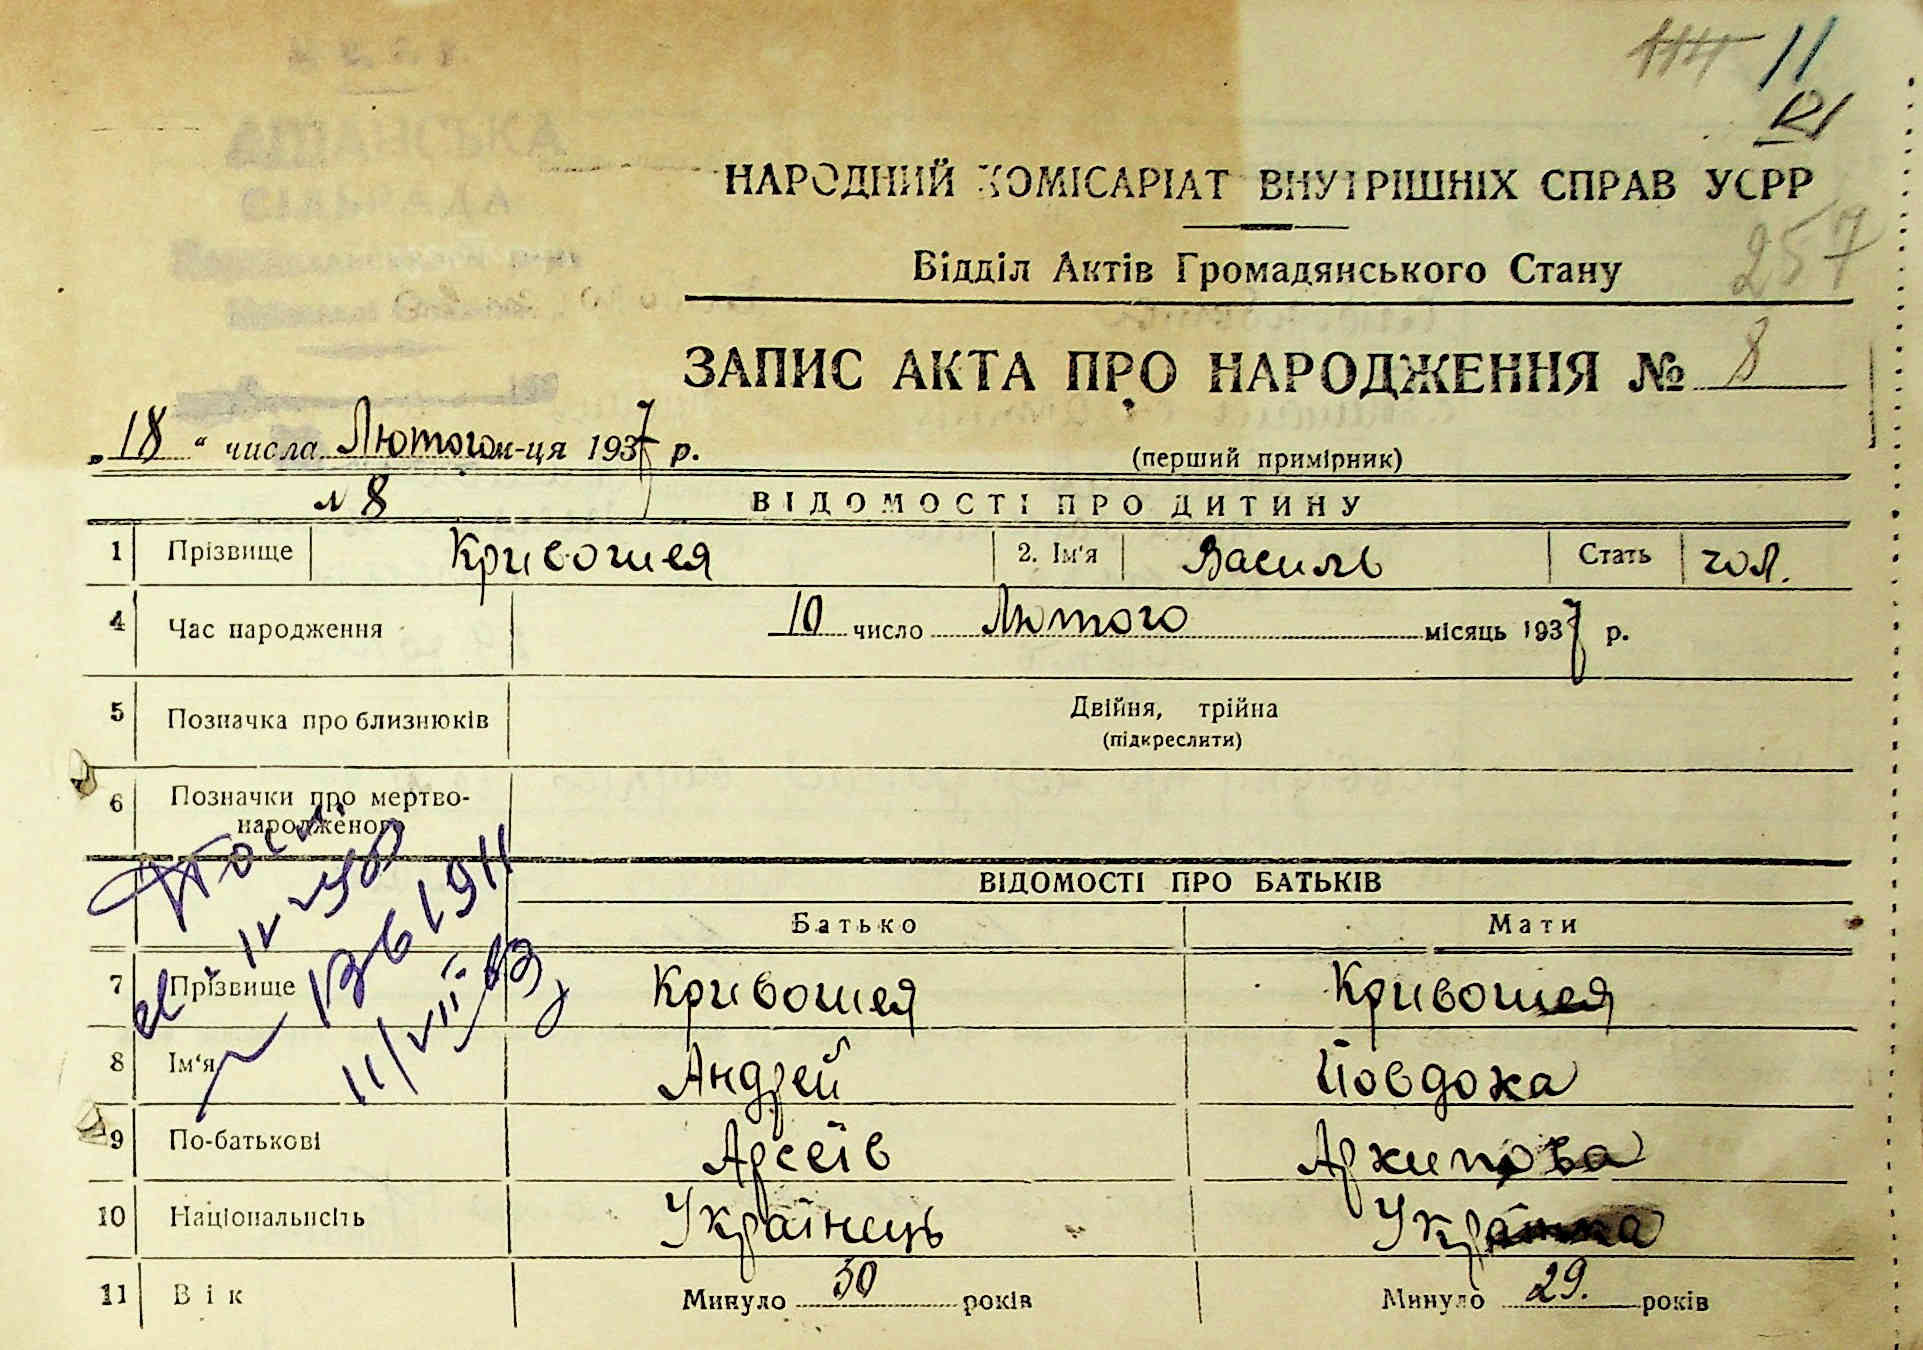 114 11
121
НАРОДНИЙ КОМІСАРІАТ ВНУТРІШНІХ СПРАВ УСРР
Відділ Актів Громадянського Стану
257
ЗАПИС АКТА ПРО НАРОДЖЕННЯ № 8
„18“ числа Лютого м-ця 1937 р.
(перший примірник)
№ 8 ВІДОМОСТІ ПРО ДИТИНУ
1 Прізвище Кривошея 2. Ім'я Василь Стать чол.
4 Час народження 10 число Лютого місяць 1937 р.
5 Позначка про близнюків Двійня, трійна
(підкреслити)
6 Позначки про мертво-
народженого
ВІДОМОСТІ ПРО БАТЬКІВ
Батько Мати
7 Прізвище Кривошея Кривошея
8 Ім'я Андрей Йовдоха
9 По-батькові Арсеїв Архипова
10 Національність Українець Українка
11 Вік Минуло 30 років Минуло 29. років